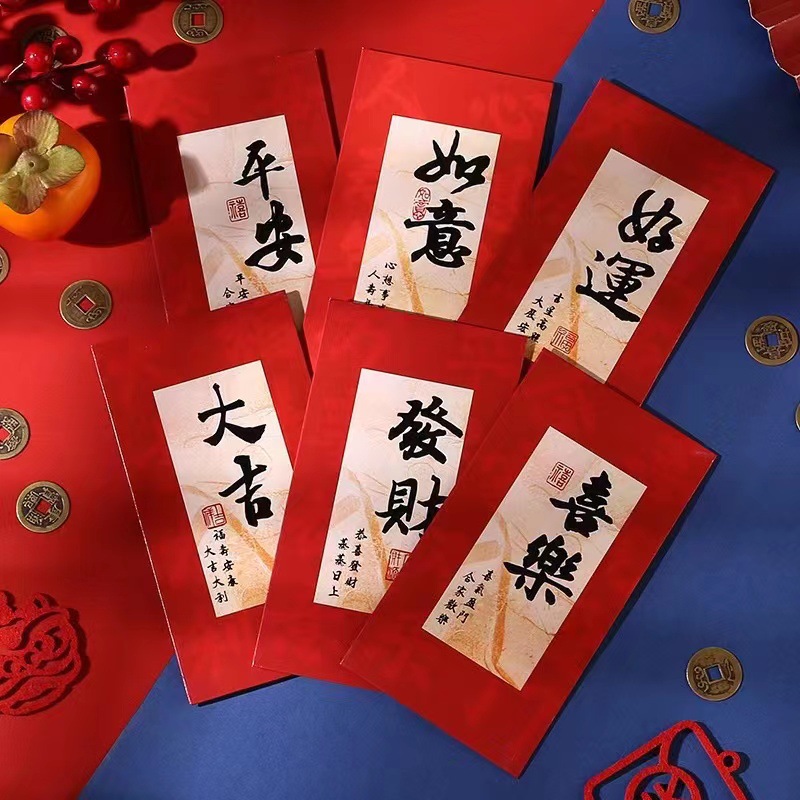 平安
平安
如意
心想事
人壽
好運
吉星高照
大展宏
大吉
福壽安康
大吉大利
發財
恭喜發財
蒸蒸日上
喜樂
喜氣盈門
合家歡樂